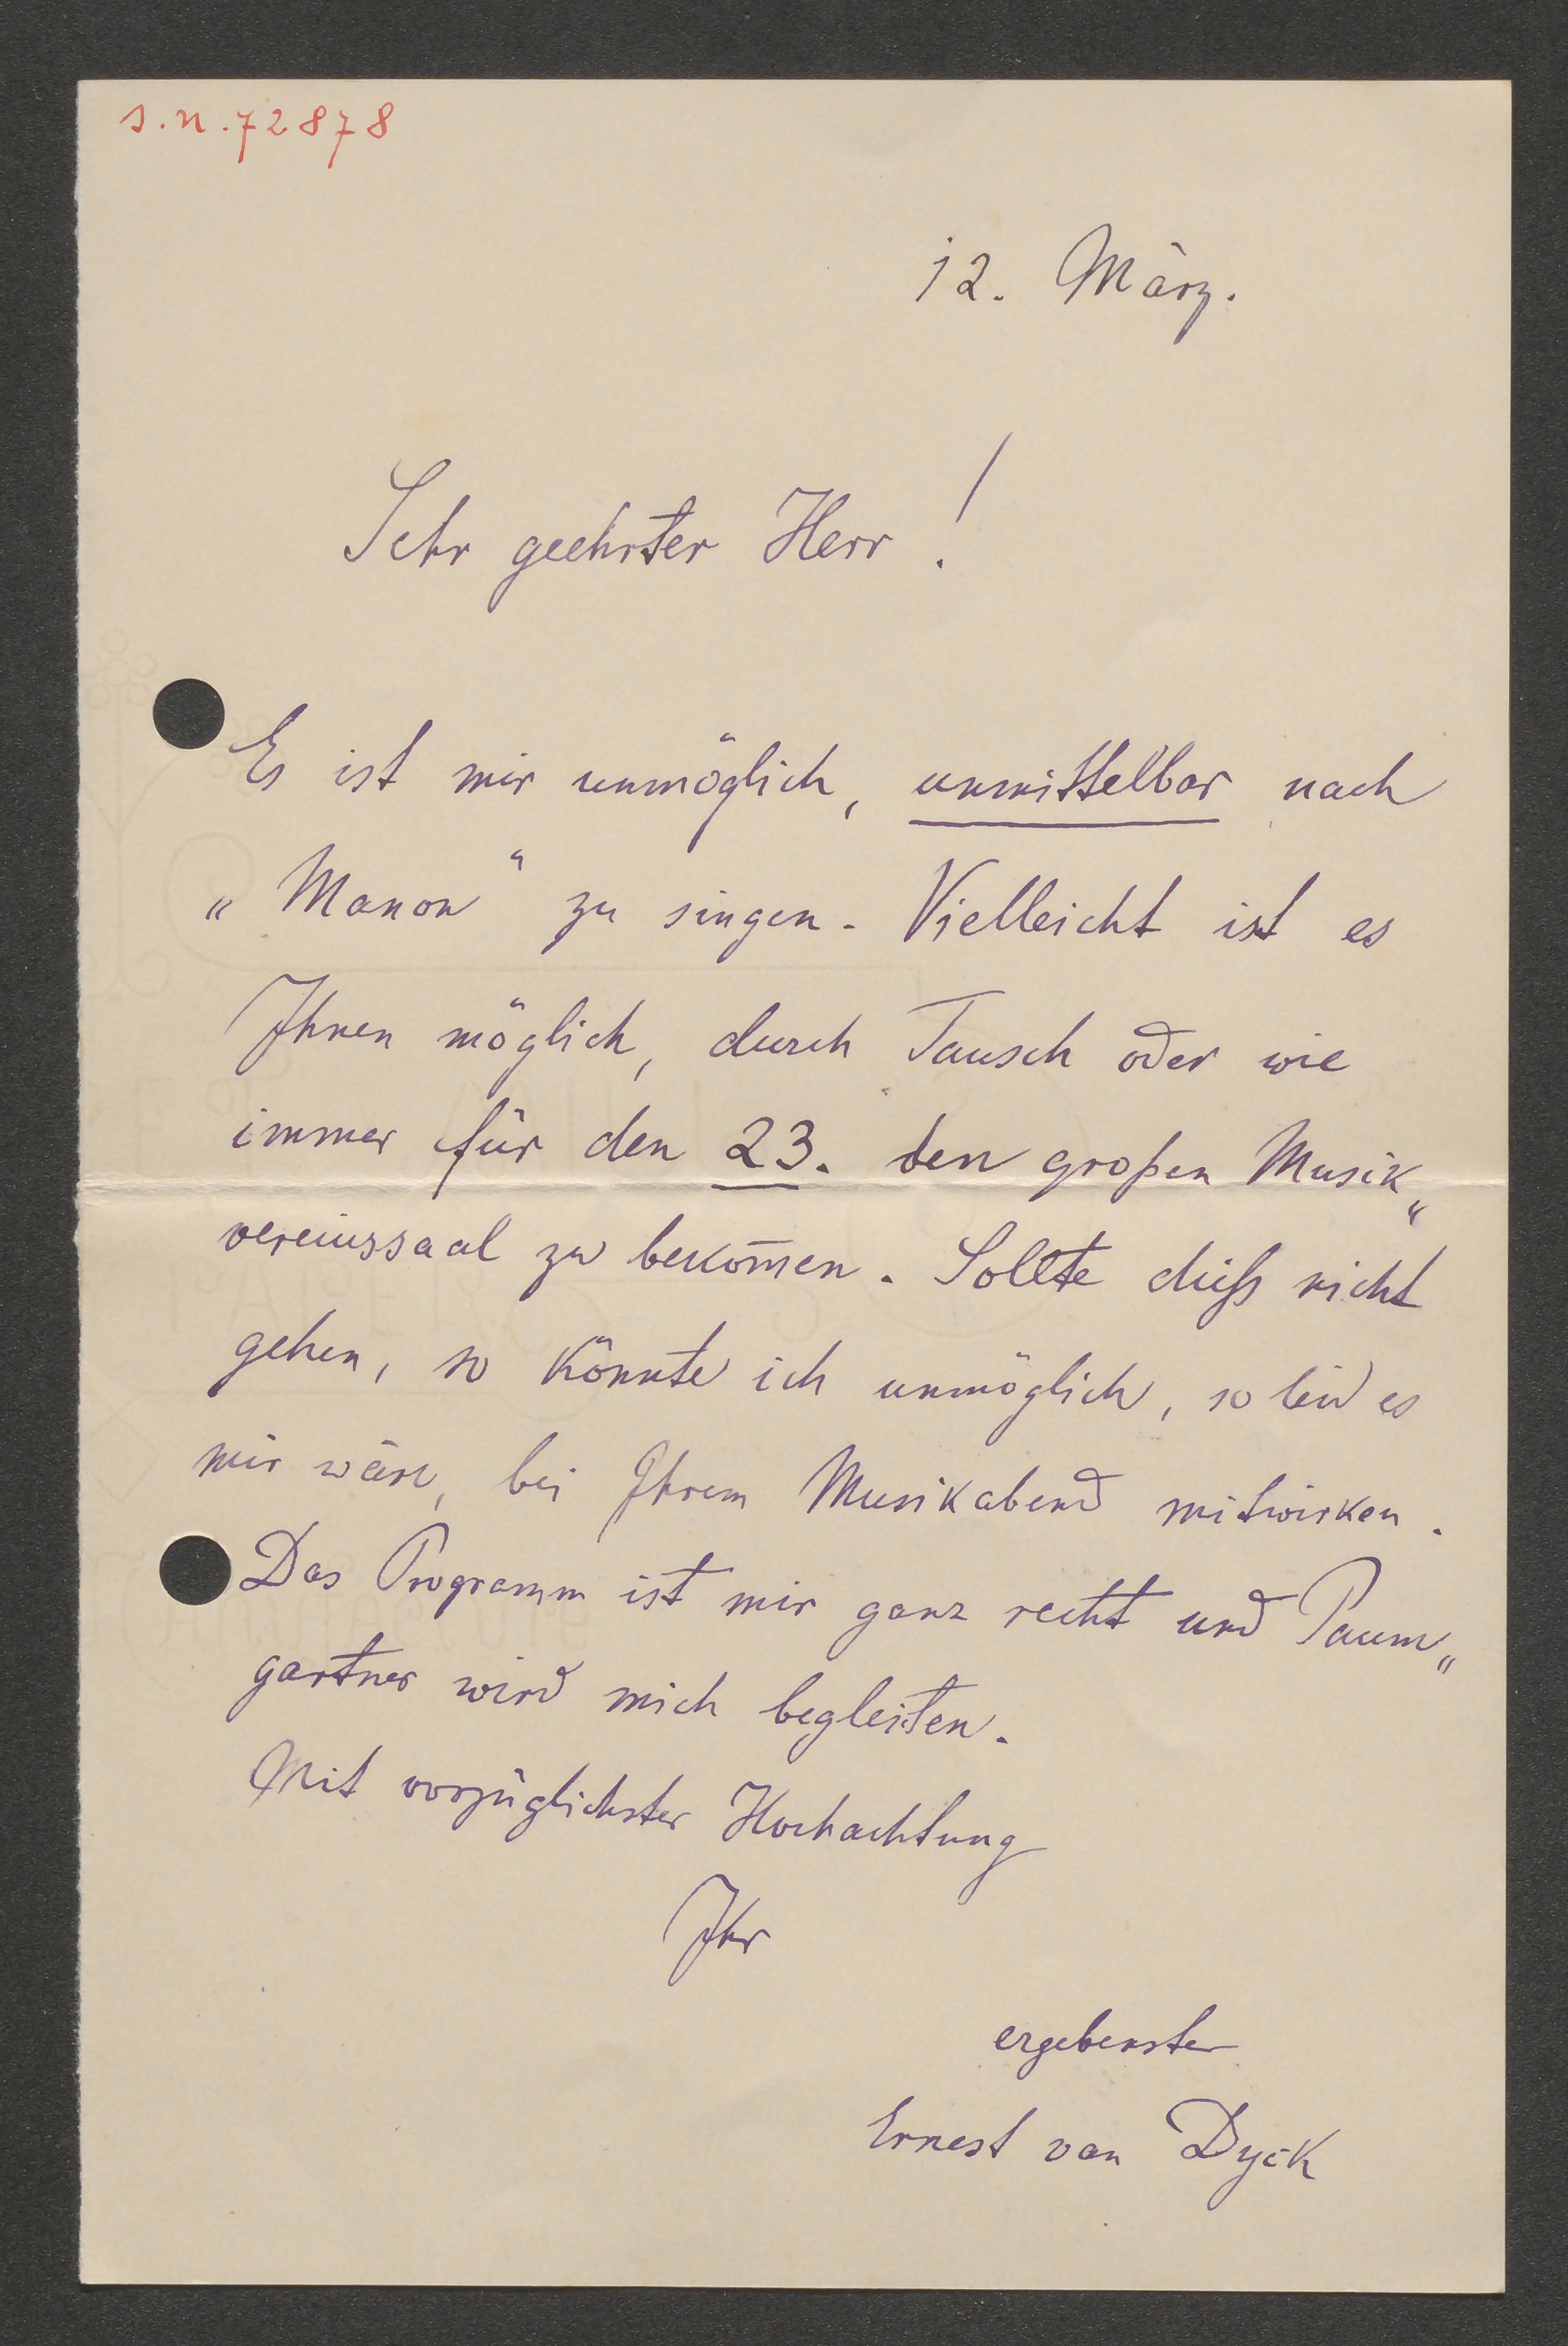 J.N.72878
12. März.
Sehr geehrter Herr!
Es ist mir unmöglich, unmittelbar nach
„Manon“ zu singen. Vielleicht ist es
Ihnen möglich, durch Tausch oder wie
immer für den 23. den großen Musik„
vereinssaal zu bekom̅en. Sollte dieß nicht
gehen, so könnte ich unmöglich, so leid es
mir wäre, bei Ihrem Musikabend mitwirken.
Das Programm ist mir ganz recht und Paum„
gartner wird mich begleiten.
Mit vorzüglichster Hochachtung
Ihr
ergebenster
Ernest van Dyck